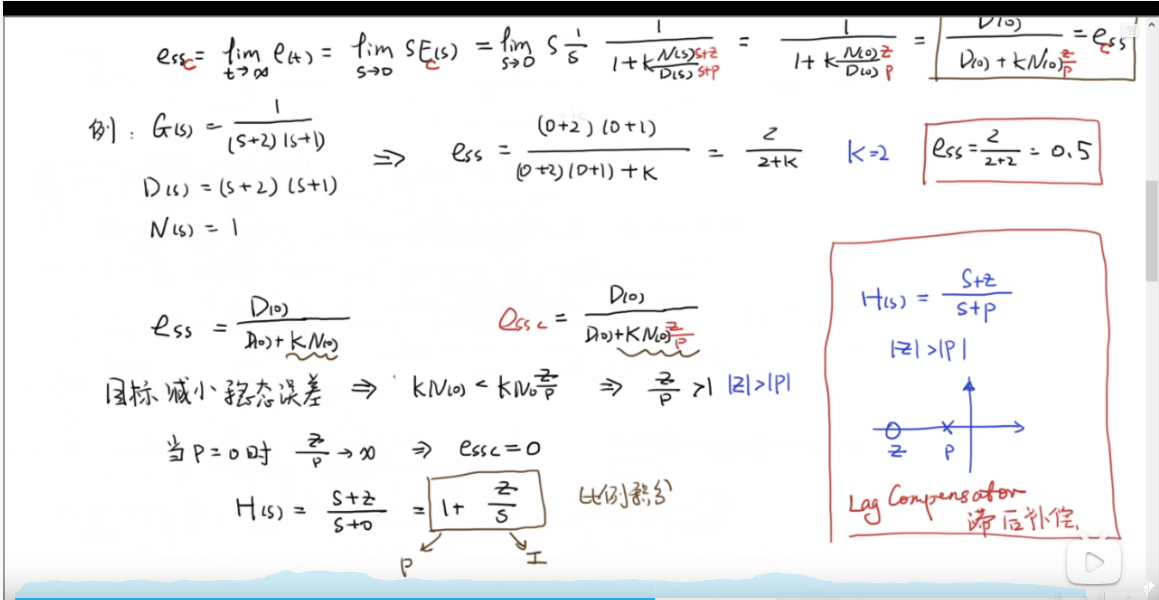 essc = lim t→∞ e(t) = lim s→0 sE_c(s) = lim s→0 s 1/s 1/(1+K N(s)/D(s) (s+z)/(s+p)) = 1/(1+K N(0)/D(0) z/p) = D(0)/(D(0)+KN(0) z/p) = e_css
例: G(s) = 1/((s+2)(s+1)) ⇒ ess = (0+2)(0+1)/((0+2)(0+1)+K) = 2/(2+K) K=2 ess = 2/(2+2) = 0.5
D(s) = (s+2)(s+1)
N(s) = 1
ess = D(0)/(D(0)+KN(0)) essc = D(0)/(D(0)+KN(0) z/p)
目标 减小稳态误差 ⇒ KN(0) < KN0 z/p ⇒ z/p >1 |z|>|p|
当 P=0时 z/p → ∞ ⇒ essc=0
H(s) = (s+z)/(s+0) = 1+ z/s 比例积分
P I
H(s) = (s+z)/(s+p)
|z|>|p|
z p
Lag Compensator
滞后补偿.